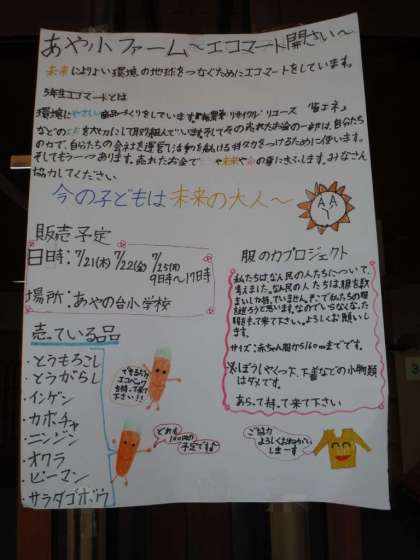 あや小ファーム～エコマート開さい～
未来によりよい環境の地球をつなぐためにエコマートをしています。
5年生エコマートとは
環境にやさしい商品づくりをしています。リサイクル リユース 省エネ
などの を大切にして取り組んでいます。そしてその売れたお金の一部は、自分たち
の力で、自分たちの会社を運営し活動を続ける力をつけるために使います。
そしてもう一つあります。売れたお金で 未来 の事にきふします。みなさん
協力してください
今の子どもは未来の大人～
販売予定
日日時:7/21(木) 7/22(金) 7/25(月)
9時～17時
場所:あやの台小学校
売っている品
・とうもろこし
・とうがらし
・インゲン
・カボチャ
・ニンジン
・オクラ
・ピーマン
・サラダゴボウ
できるだけ
エコバッグ
を持って来て
下さい!!
どれも
100円の
予定です
服のカプロジェクト
私たちは、なん民の人たちについて、
考えました。なん民の人たちは服を数
まいしか持っていません。そこで私たちの服
を送ろうと思います。なのでいらなくなった
服を持って来て下さい。よろしくお願いし
ます。
サイズ:赤ちゃん服から160cmまでです。
※ぼうしやくつ下、下着などの小物類
はダメです。
あらって持って来て下さい
ご協力
よろしくおねがいし
しまーす